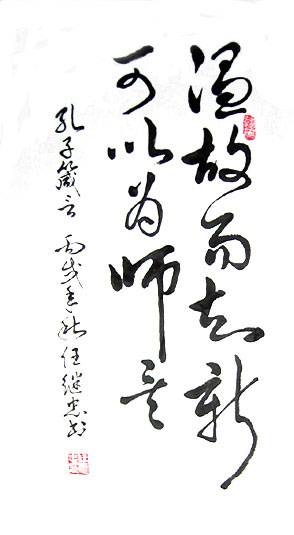 温故而知新
可以为师矣
孔子箴言 丙戌年秋 任继忠书